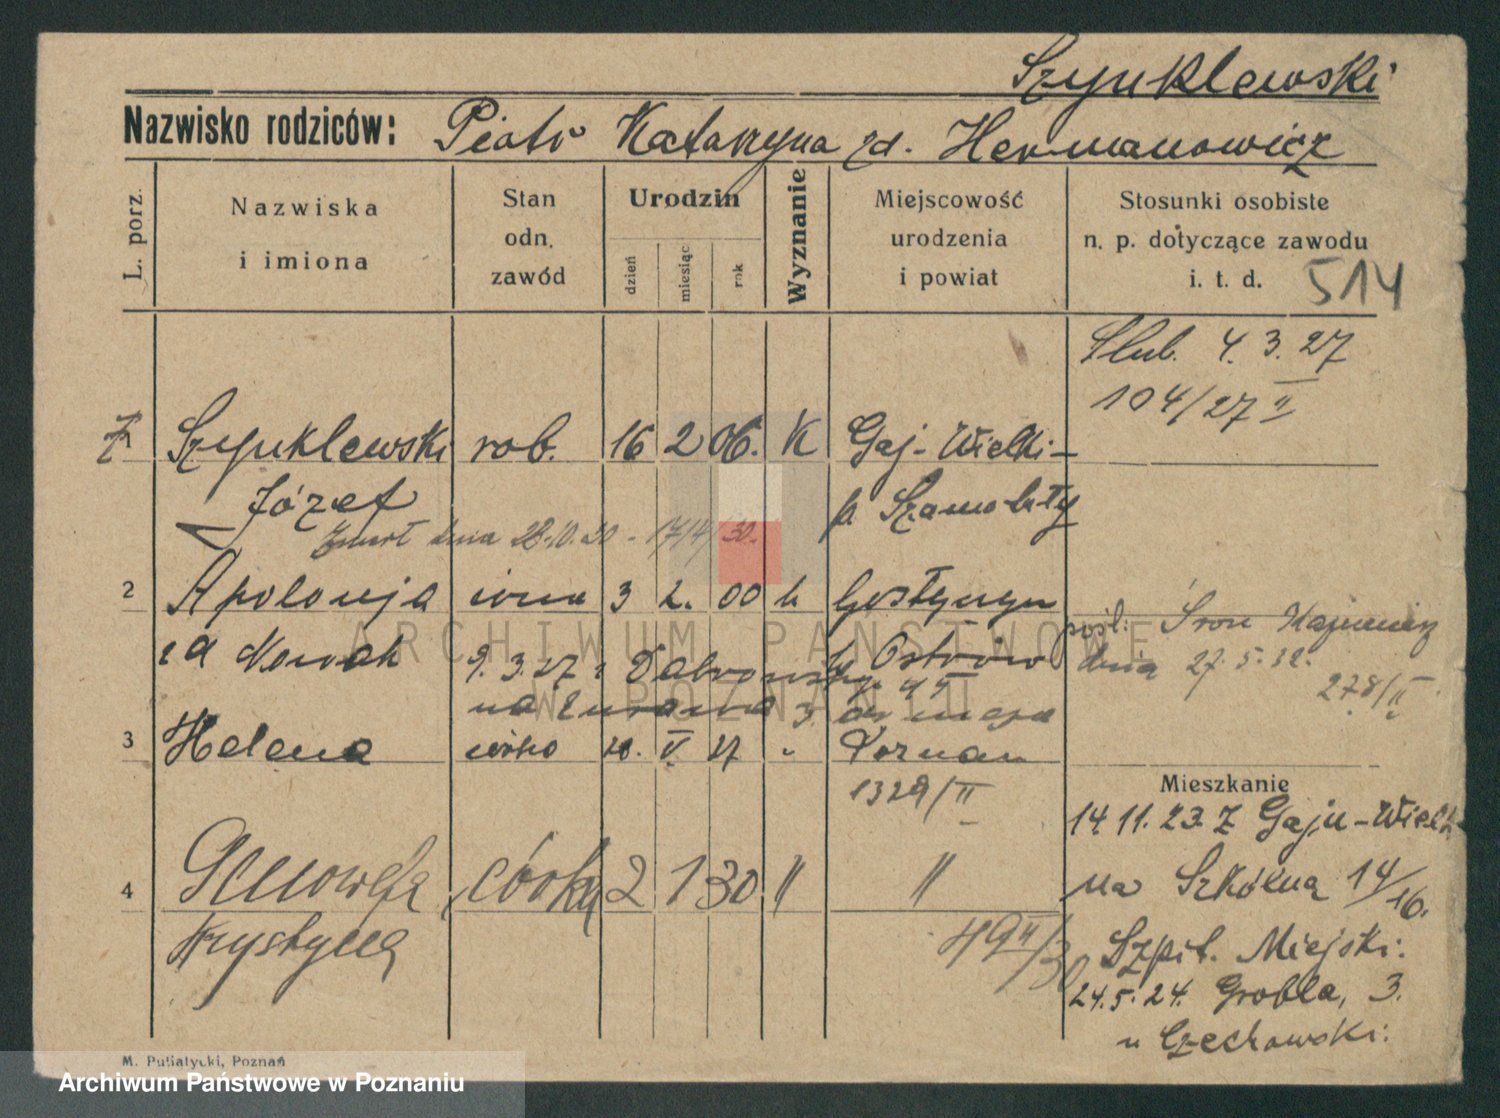 Szynklewski
Nazwisko rodziców: Piotr Katarzyna zd. Hermanowicz
L. porz.
Nazwiska
i imiona
Stan
odn.
zawód
Urodzin
dzień
miesiąc
rok
Wyznanie
Miejscowość
urodzenia
i powiat
Stosunki osobiste
n. p. dotyczące zawodu
i. t. d.
514
Slub. 4. 3. 27
104/27 II
Szynklewski rob. 16 2 06. K Gaj-Wielki-
Józef p. Szamotuły
Zmarł dnia 28.10.30 - 1714/30.
2 Apolonja żona 3 2. 00 k Gostyczyn
zd Nowak 9.3.27 z Dąbrowskiej p. Ostrów
na Żurawia 3.
3 Helena córka 20. V 27 " Poznań
1329/II
pośl. Sron Kazimierz
dnia 27.5.32.
278/II
4 Genowefa córka 2 1 30 " "
Krystyna
49 II/30
Mieszkanie
14.11.23. Z Gaju-Wielk.
na Szkolna 14/16.
Szpit. Miejski.
24.5.24. Grobla, 3.
u Czechowski.
M. Putiatycki, Poznań
ARCHIWUM PAŃSTWOWE
W POZNANIU
Archiwum Państwowe w Poznaniu